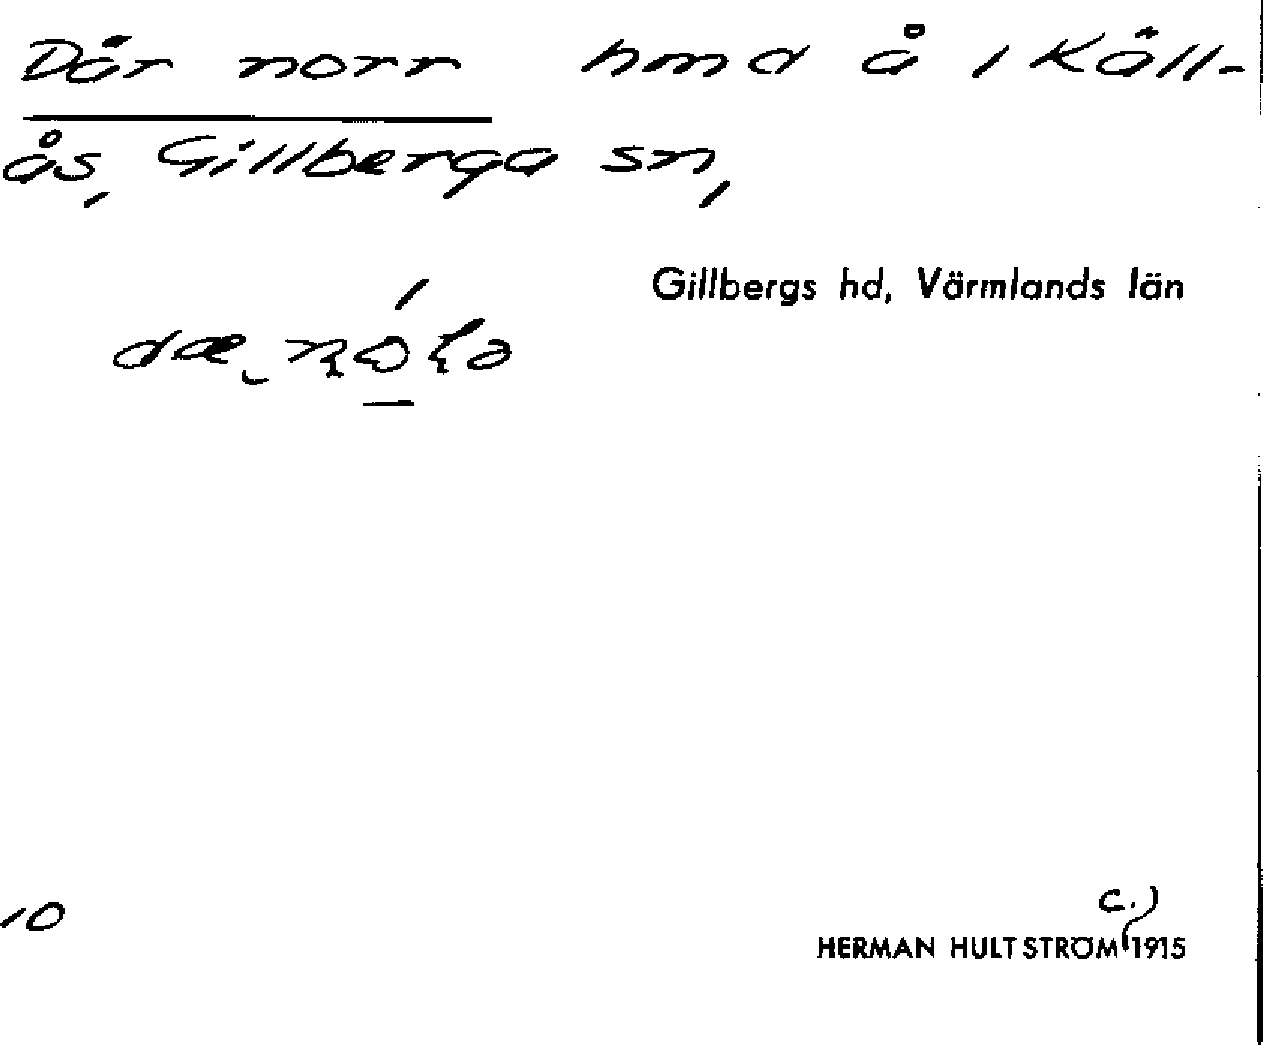 Där norr hmd å i Käll-
ås, Gillberga sn,
Gillbergs hd, Värmlands län
10
c.)
HERMAN HULTSTRÖM 1915